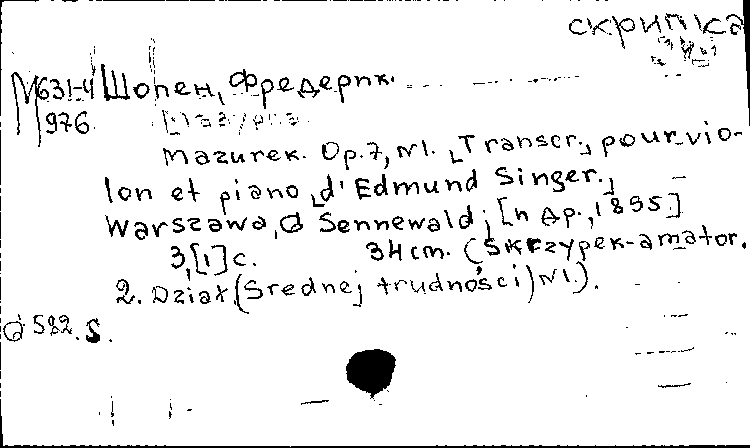 скрипка
М631-4 Шопен, Фредерик.
976
Mazurek. Op.7, N1. [Transcr.] pour vio-
lon et piano [d'Edmund Singer.]
Warszawa, G Sennewald; [и др., 1855]
3,[1]с. 34 cm. (Skrzypek-amator.
2. Dział (Srednej trudności) N1).
G 582. S.